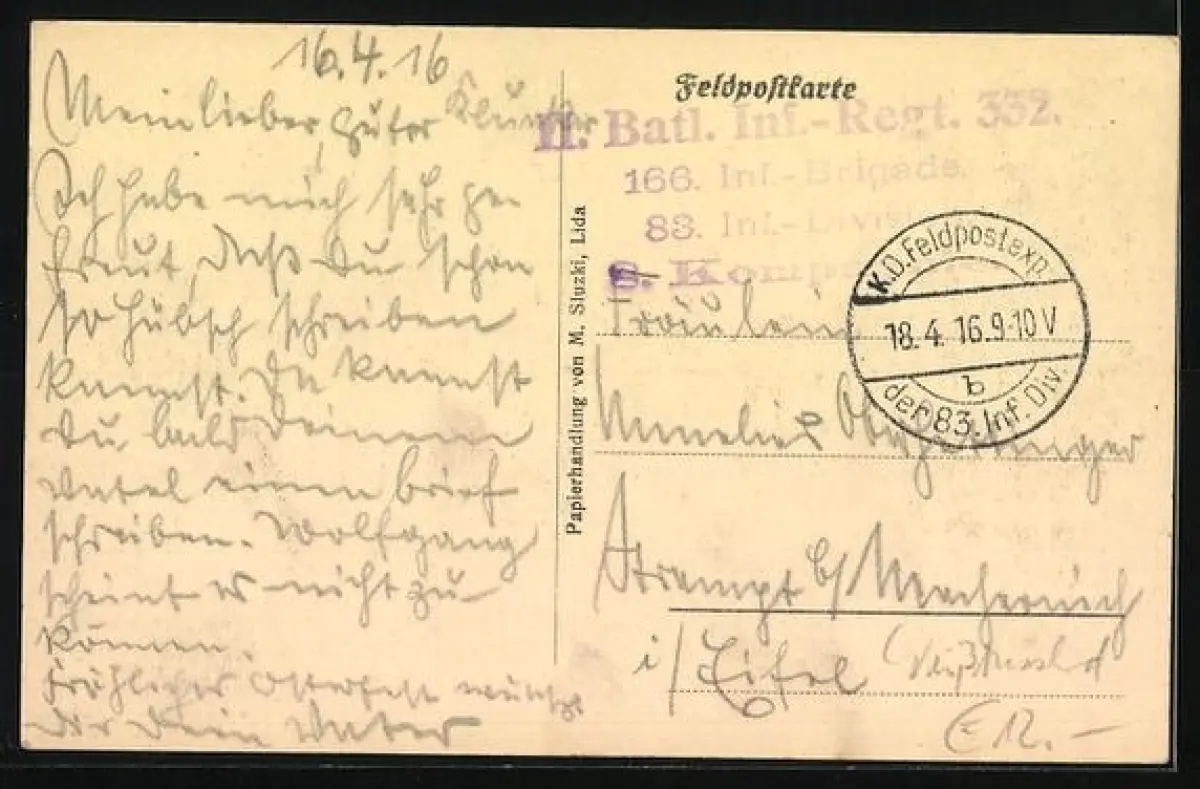 16.4.16
Mein lieber, guter
Ich habe mich sehr ge-
freut, daß Du schon
so hübsch schreiben
kannst. Du kannst
Du bald Deinem
Vatel einen brief
schreiben. Wolfgang
scheint es nicht zu
können.
Fröhliches Osterfest wünscht
Dir Dein Vater
Papierhandlung von M. Sluzki, Lida
Feldpostkarte
II. Batl. Inf.-Regt. 332.
166. Inf.-Brigade.
83. Inf.-Divis
8. Komp
K.D. Feldpostexp.
18.4.16.9-10V
b
der 83. Inf. Div.
Fräulein
Annelies
Strempt b/ Mechernich
i/Eifel
€ 12.-